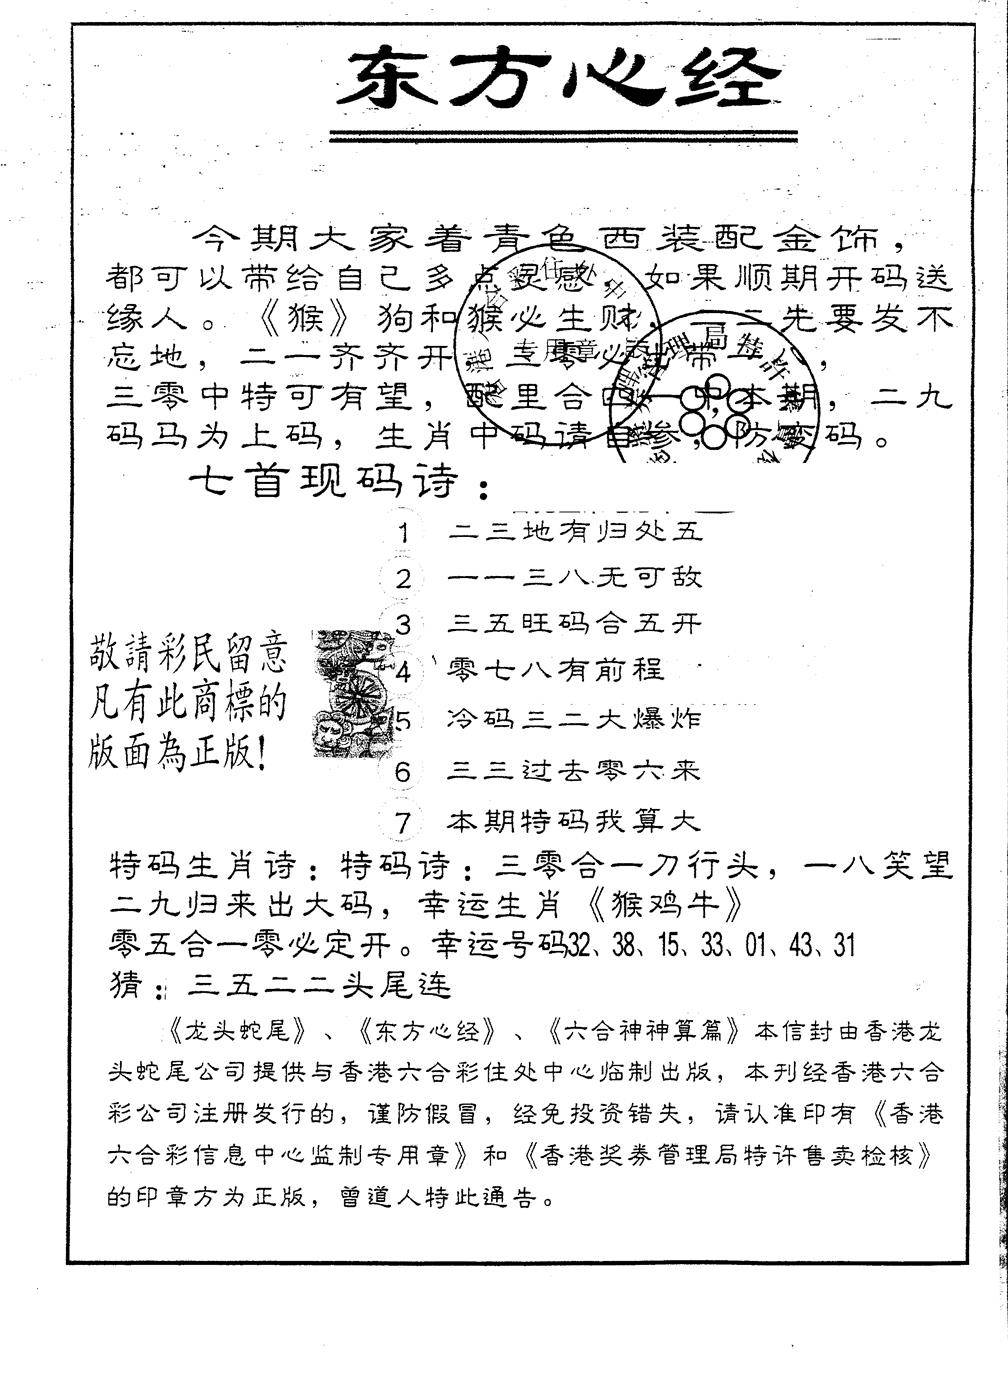 东方心经
今期大家着青色西装配金饰，
都可以带给自己多点灵感，如果顺期开码送
缘人。《猴》狗和猴必生财，一二先要发不
忘地，二一齐齐开，三零必带
三零中特可有望，配里合四中本期，二九
码马为上码，生肖中码请自参，防变码。
七首现码诗：
1 二三地有归处五
2 一一三八无可敌
3 三五旺码合五开
4 零七八有前程
5 冷码三二大爆炸
6 三三过去零六来
7 本期特码我算大
敬請彩民留意
凡有此商標的
版面為正版！
特码生肖诗：特码诗：三零合一刀行头，一八笑望
二九归来出大码，幸运生肖《猴鸡牛》
零五合一零必定开。幸运号码32、38、15、33、01、43、31
猜：三五二二头尾连
《龙头蛇尾》、《东方心经》、《六合神神算篇》本信封由香港龙
头蛇尾公司提供与香港六合彩住处中心临制出版，本刊经香港六合
彩公司注册发行的，谨防假冒，经免投资错失，请认准印有《香港
六合彩信息中心监制专用章》和《香港奖券管理局特许售卖检核》
的印章方为正版，曾道人特此通告。
专用章